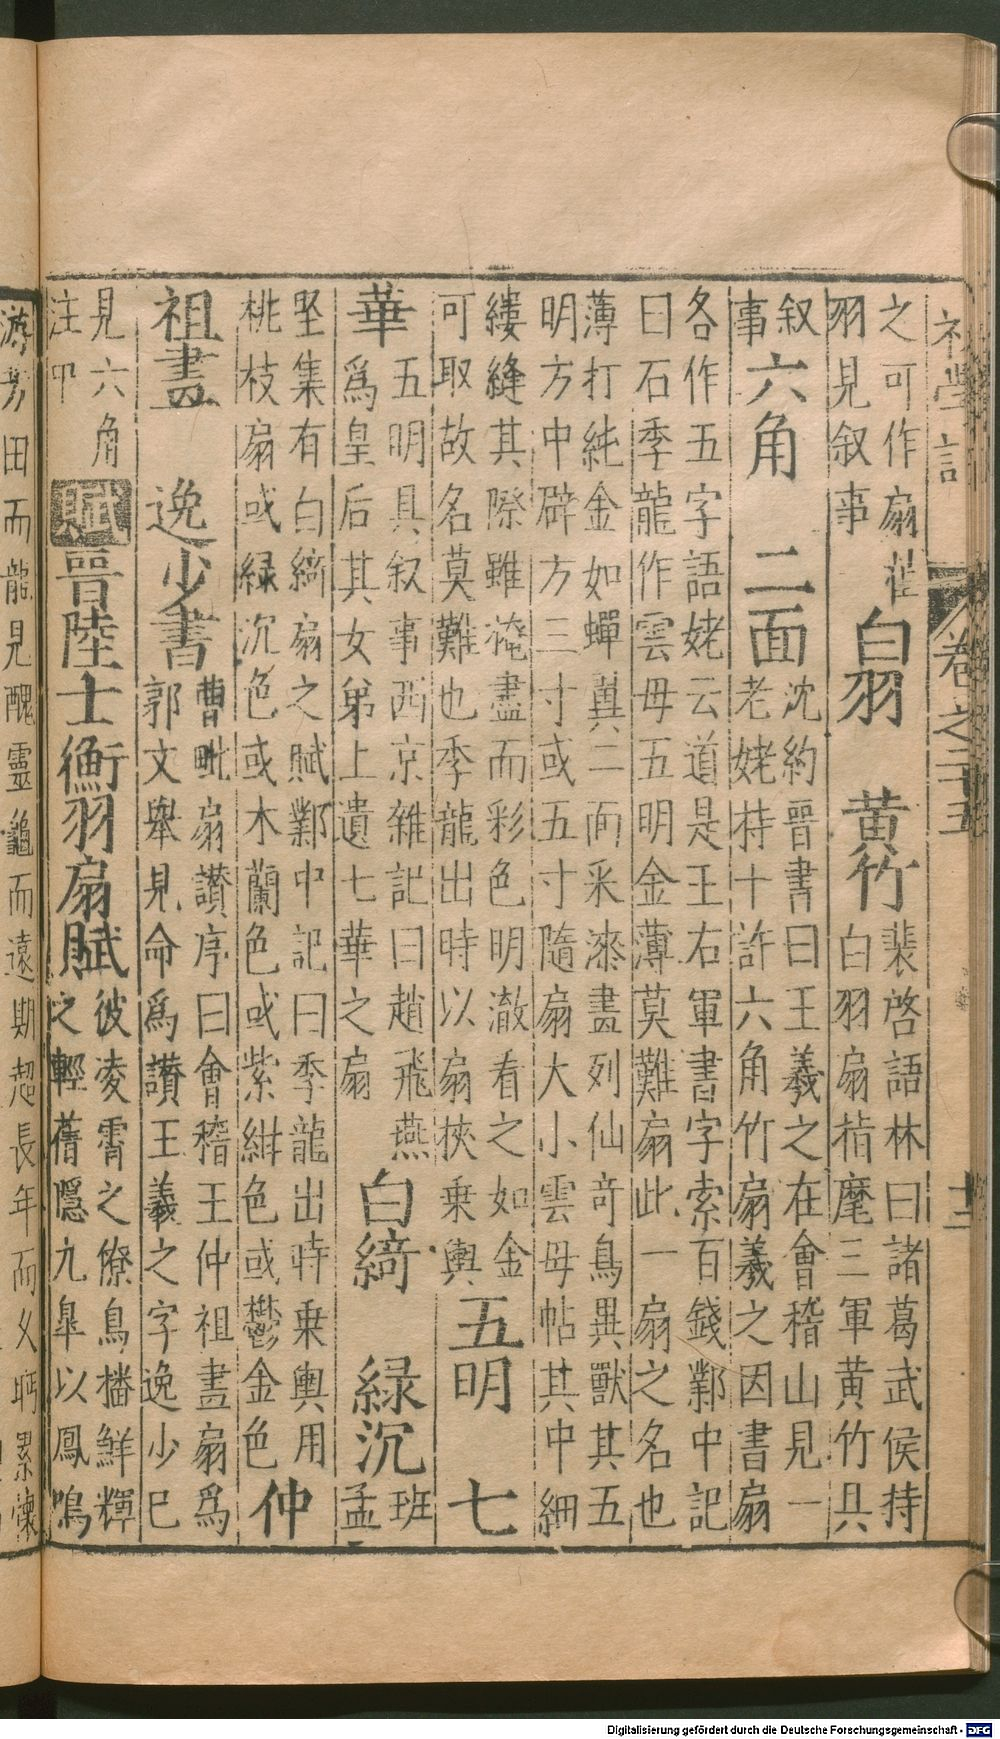 初學記 卷之二十五
之可作扇柱羽見叙事 白羽 黄竹 裴啓語林曰諸葛武侯持白羽扇指麾三軍黄竹具
叙事 六角 二面 沈約晉書曰王羲之在會稽山見一老姥持十許六角竹扇羲之因書扇
各作五字語姥云道是王右軍書字索百錢鄴中記曰石季龍作雲母五明金薄莫難扇此一扇之名也
薄打純金如蟬翼二面采漆畫列仙奇鳥異獸其五明方中辟方三寸或五寸隨扇大小雲母帖其中細
縷縫其際雖掩盡而彩色明澈看之如金可取故名莫難也季龍出時以扇挾乗輿 五明 七
華 五明具叙事西京雜記曰趙飛燕爲皇后其女弟上遺七華之扇 白綺 緑沉 班孟
堅集有白綺扇之賦鄴中記曰季龍出時乗輿用桃枝扇或緑沉色或木蘭色或紫紺色或鬱金色 仲
祖畫 逸少書 曹毗扇讃序曰會稽王仲祖畫扇爲郭文舉見命爲讃王羲之字逸少巳
見六角注中 賦 晉陸士衡羽扇賦 彼凌霄之僚鳥播鮮輝之輕蒨隱九臯以鳳鳴
游芳田而龍見醜靈龜而遠期超長年而久眄累懷
Digitalisierung gefördert durch die Deutsche Forschungsgemeinschaft - DFG